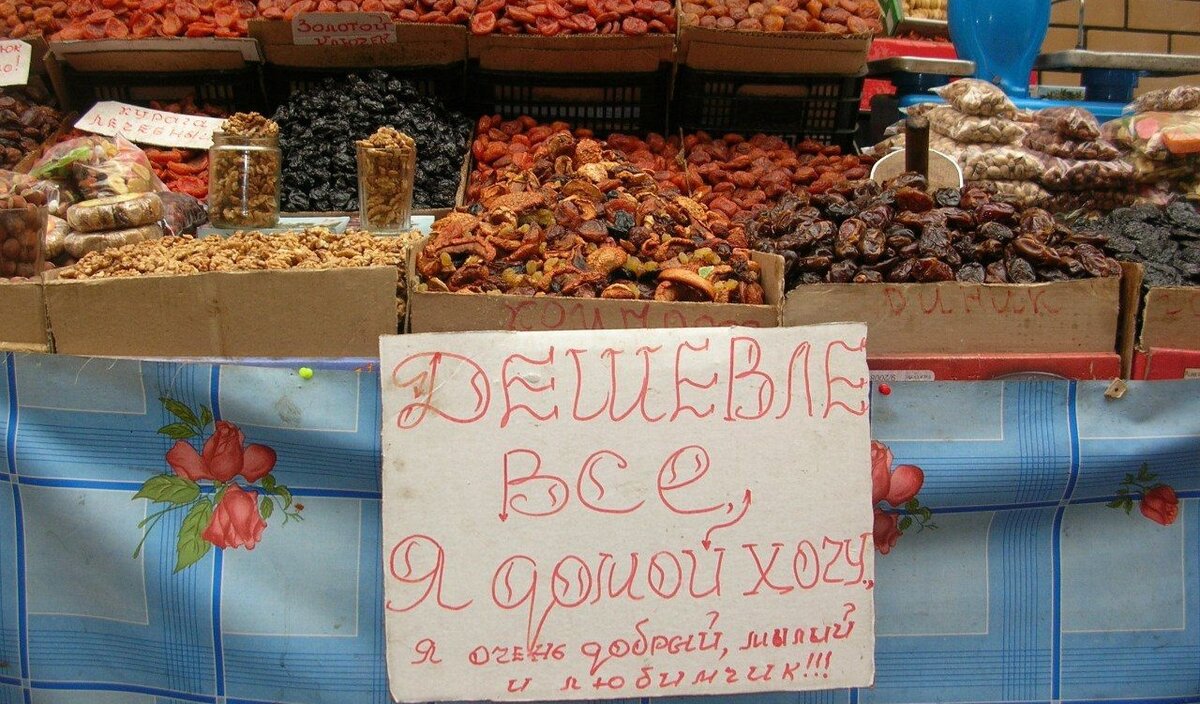 Золотой
ключек
курага
лечебный
финик
Дешевле
все,
Я домой хочу,
я очень добрый, милый
и любимчик!!!